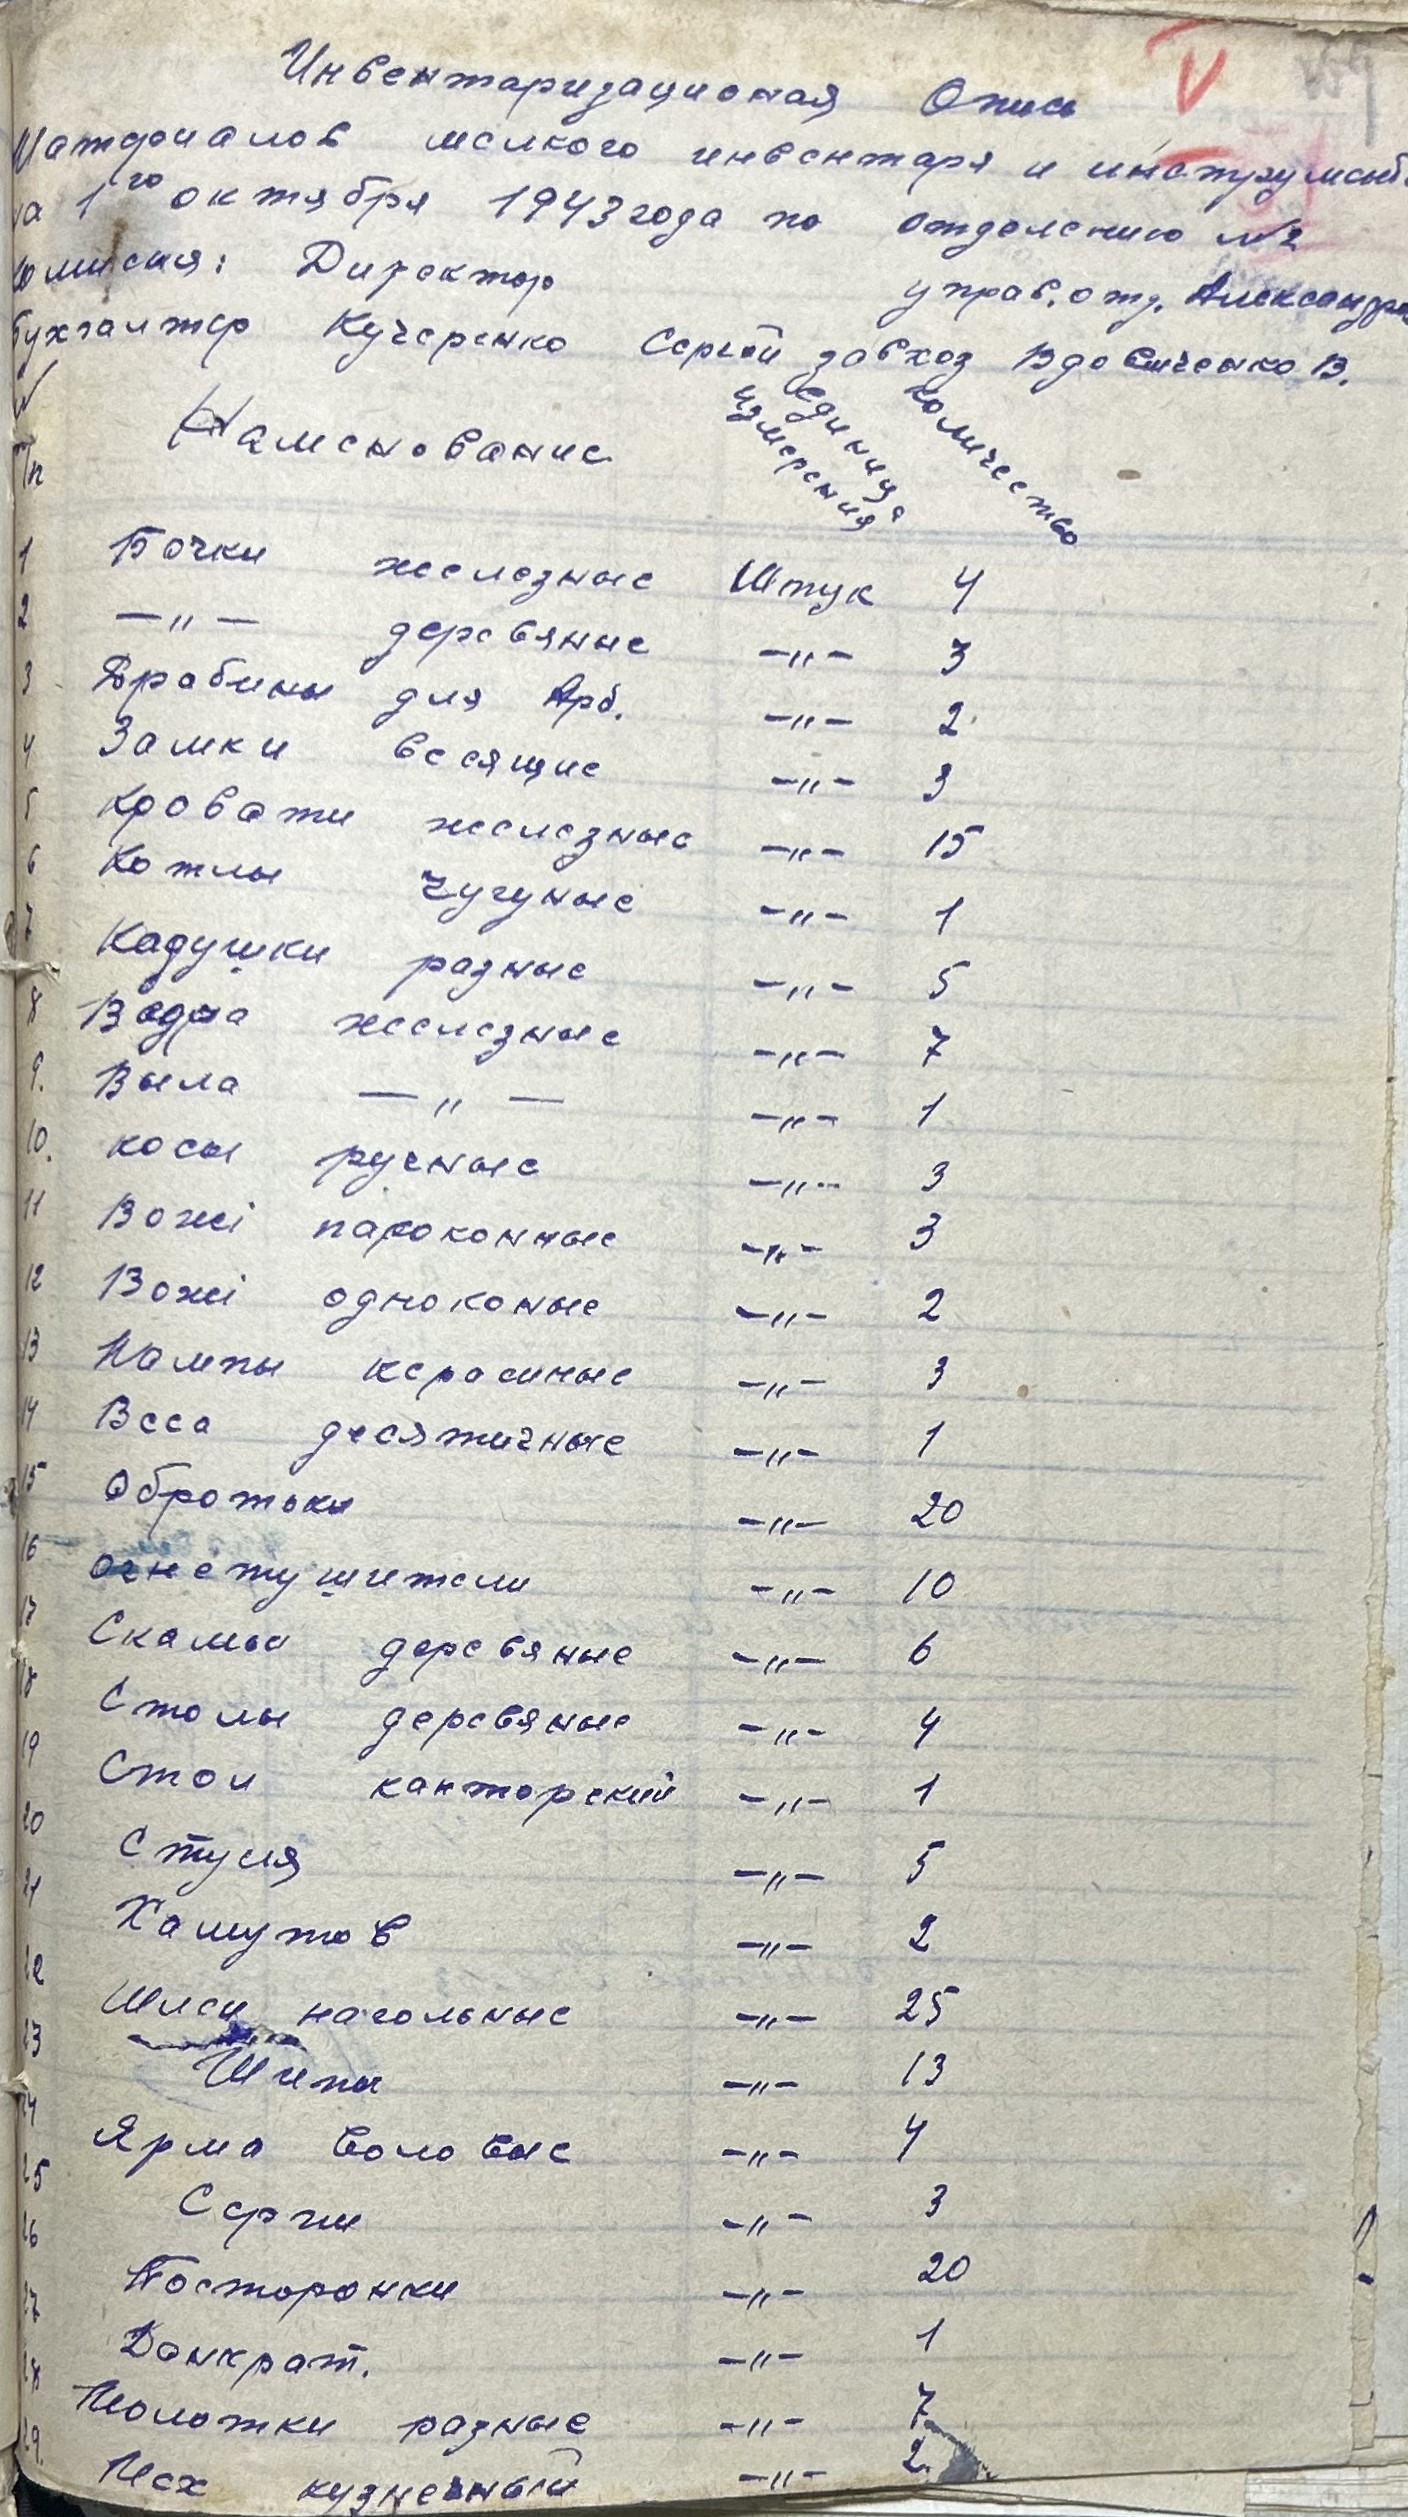 Инвентаризационая Опись
V
Материалов мелкого инвентаря и инструмент.
на 1го октября 1943 года по отделению №2
Комиссия: Директор управ. отд. Александров
бухгалтер Кучеренко Сергей завхоз Вдовиченко В.
№ п/п Наменование единица измерения количество
1 Бочки железные Штук 4
2 —〃— деревяные —〃— 3
3 Драбины для Арб. —〃— 2
4 Замки весящие —〃— 3
5 Кровати железные —〃— 15
6 Котлы чугуные —〃— 1
7 Кадушки разные —〃— 5
8 Ведра железные —〃— 7
9. Выла —〃— —〃— 1
10. косы ручные —〃— 3
11 Вожі пароконные —〃— 3
12 Вожі одноконые —〃— 2
13 Лампы керасиные —〃— 3
14 Веса десятичные —〃— 1
15 Обротьки —〃— 20
16 огнетушители —〃— 10
17 Скамьи деревяные —〃— 6
18 Столы деревяные —〃— 4
19 Стол канторский —〃— 1
20 Стуля —〃— 5
21 Хамутов —〃— 2
22 Шлеи нагольные —〃— 25
23 Шины —〃— 13
24 Ярма воловые —〃— 4
25 Серпи —〃— 3
26 Посторонки —〃— 20
27 Домкрат. —〃— 1
28 Молотки разные —〃— 7
29. Мех кузнечный —〃— 2